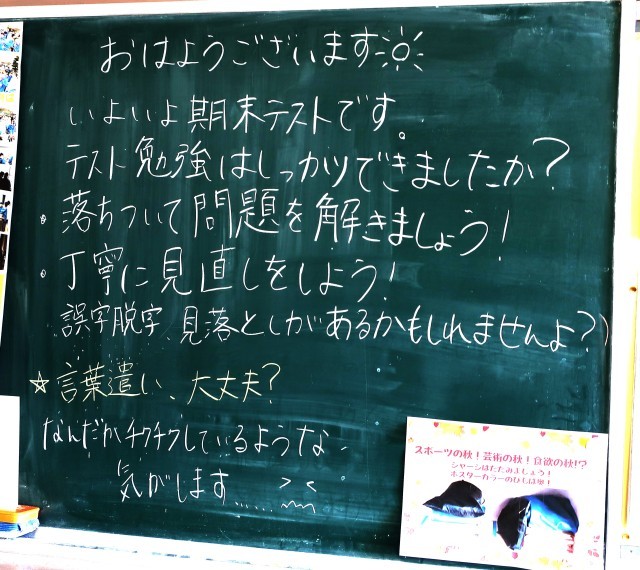 おはようございます
いよいよ期末テストです。
テスト勉強はしっかりできましたか?
・落ちついて問題を解きましょう!
・丁寧に見直しをしよう!
誤字脱字、見落としがあるかもしれませんよ?)
☆言葉遣い、大丈夫?
なんだかチクチクしているような
気がします……
スポーツの秋!芸術の秋!食欲の秋!?
ジャージはたたみましょう!